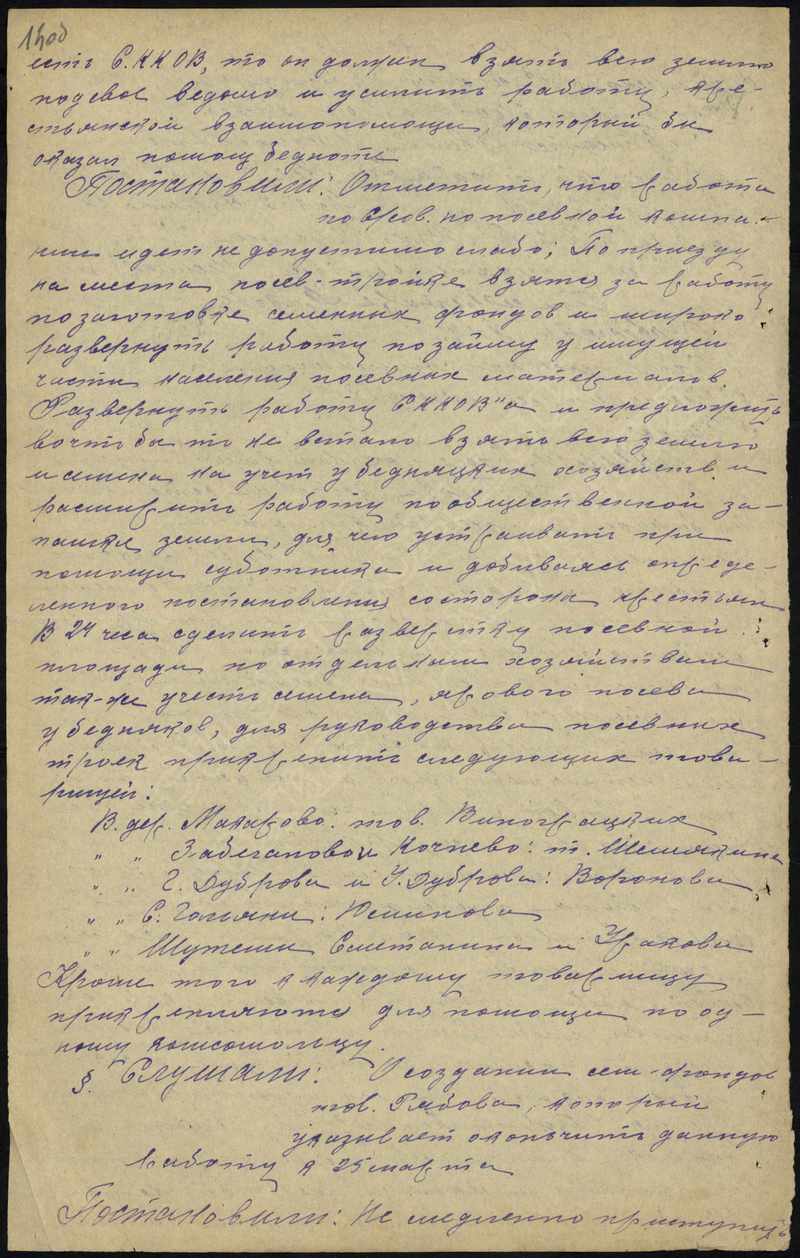 14об
есть С.ККОВ, то он должен взять всю землю
под свое ведомо и усилить работу, кре-
стьянской взаимопомощи, который бы
оказал помощь бедноте
Постановили: Отметить, что работа
по посевной компа-
нии идет не допустимо слабо; По приезду
на места посев-тройке взятся за работу
по заготовке семенных фондов и широко
развернуть работу по займу у имущей
части населения посевных материалов.
Развернуть работу СККОВ"а и предложить
во чтобы то не встало взять всю землю
и семена на учет у бедняцких хозяйств и
расширить работу по общественной за-
пашке земли, для чего устраивать при
помощи суботника и добиваясь опреде-
ленного постановления состороны крестьян
В 24 часа сделить разверстку посевной
площади по отдельным хозяйствам
так-же учесть семена, ярового посева
у бедняков, для руководства посевных
троек прикрепить следующих това-
рищей:
В. дер. Макарово: тов. Виноградских
" " Забегалово и Кочнево: т. Шемякина
" " Г. Дуброва и У. Дуброва: Воронова
" " С. Гольяны: Юминова
" " Шутеми Сметанина и Уракова
Кроме того к каждому товарищу
прикрепляются для помощи по од-
ному комсомольцу.
§. Слушали: О создании сем-фондов
тов. Рябова, который
указывает окончить данную
работу к 25 марта
Постановили: Не медленно приступить